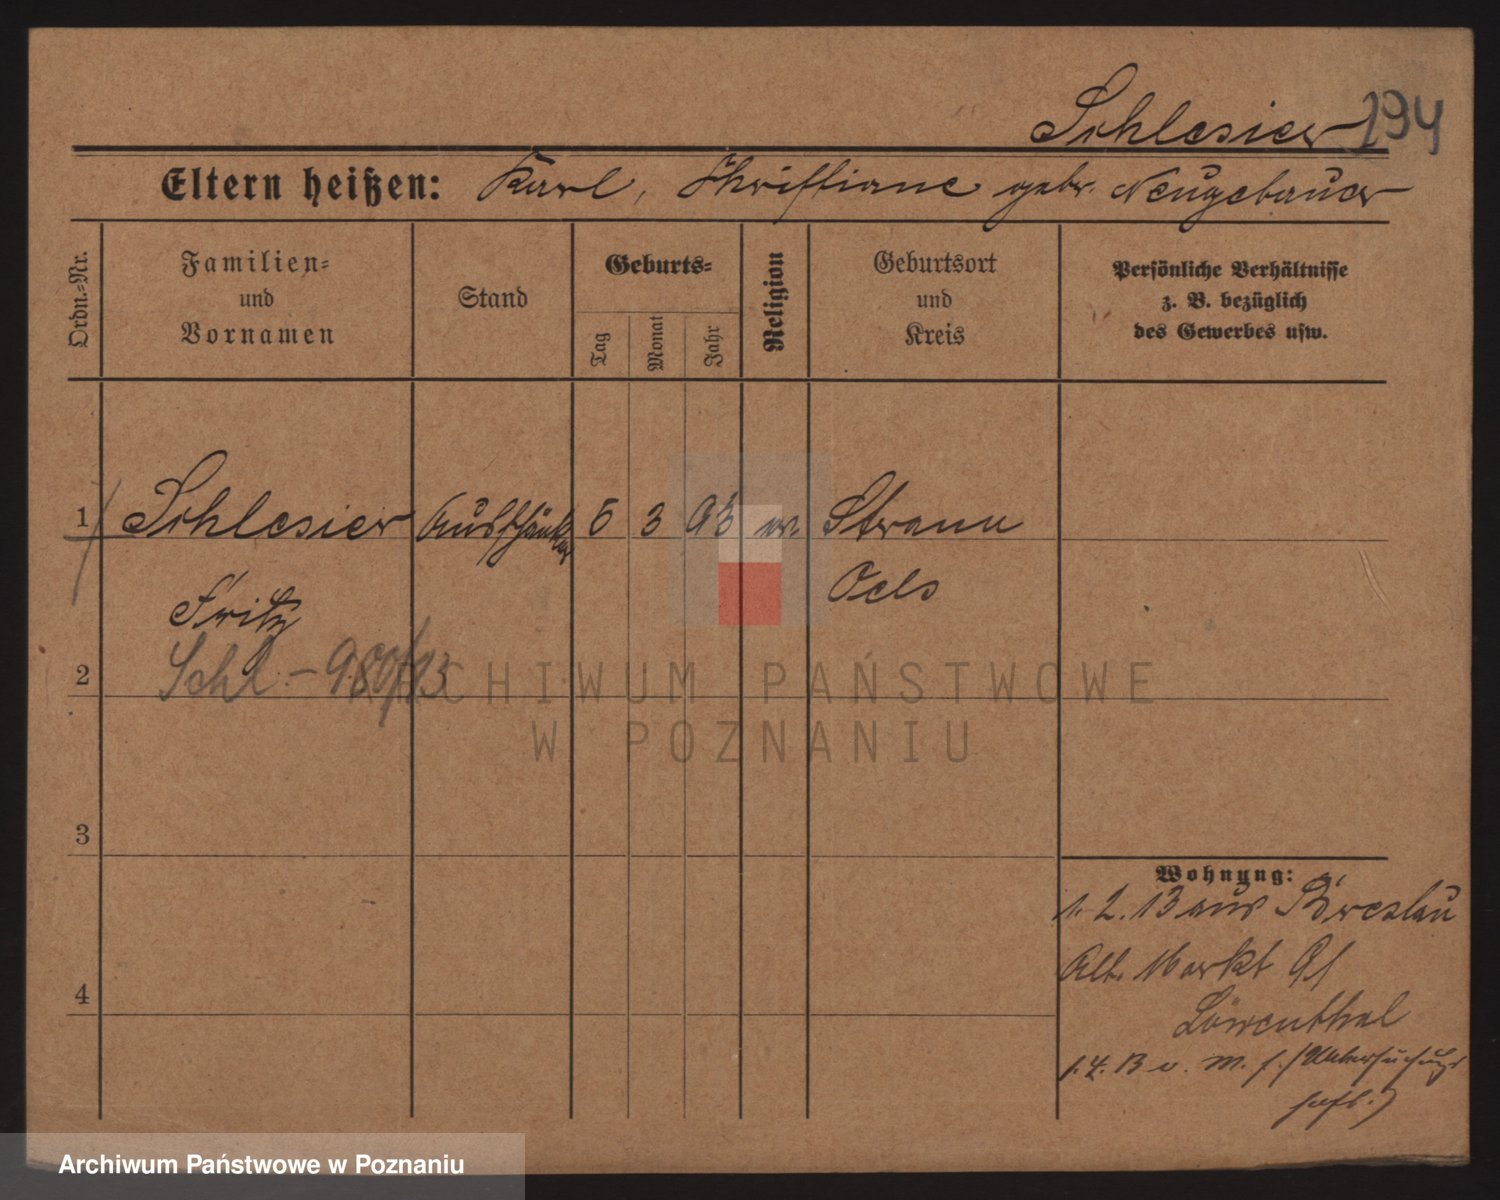 Schlesier 194
Eltern heißen: Karl, Christiane gebr. Neugebauer
Ordn.-Nr.
Familien-
und
Vornamen
Stand
Geburts-
Tag
Monat
Jahr
Religion
Geburtsort
und
Kreis
Persönliche Verhältnisse
z. B. bezüglich
des Gewerbes usw.
1 Schlesier Ausschänker 5 3 93 Strann
Fritz Oels
2 Schl. - 980/13
3
4
Wohnung:
1. 2. 13 aus Breslau
Alt. Markt 91
Löwenthal
1. 4. 13 v. M. f. (Untersuchungs
haft.)
ARCHIWUM PAŃSTWOWE
W POZNANIU
Archiwum Państwowe w Poznaniu